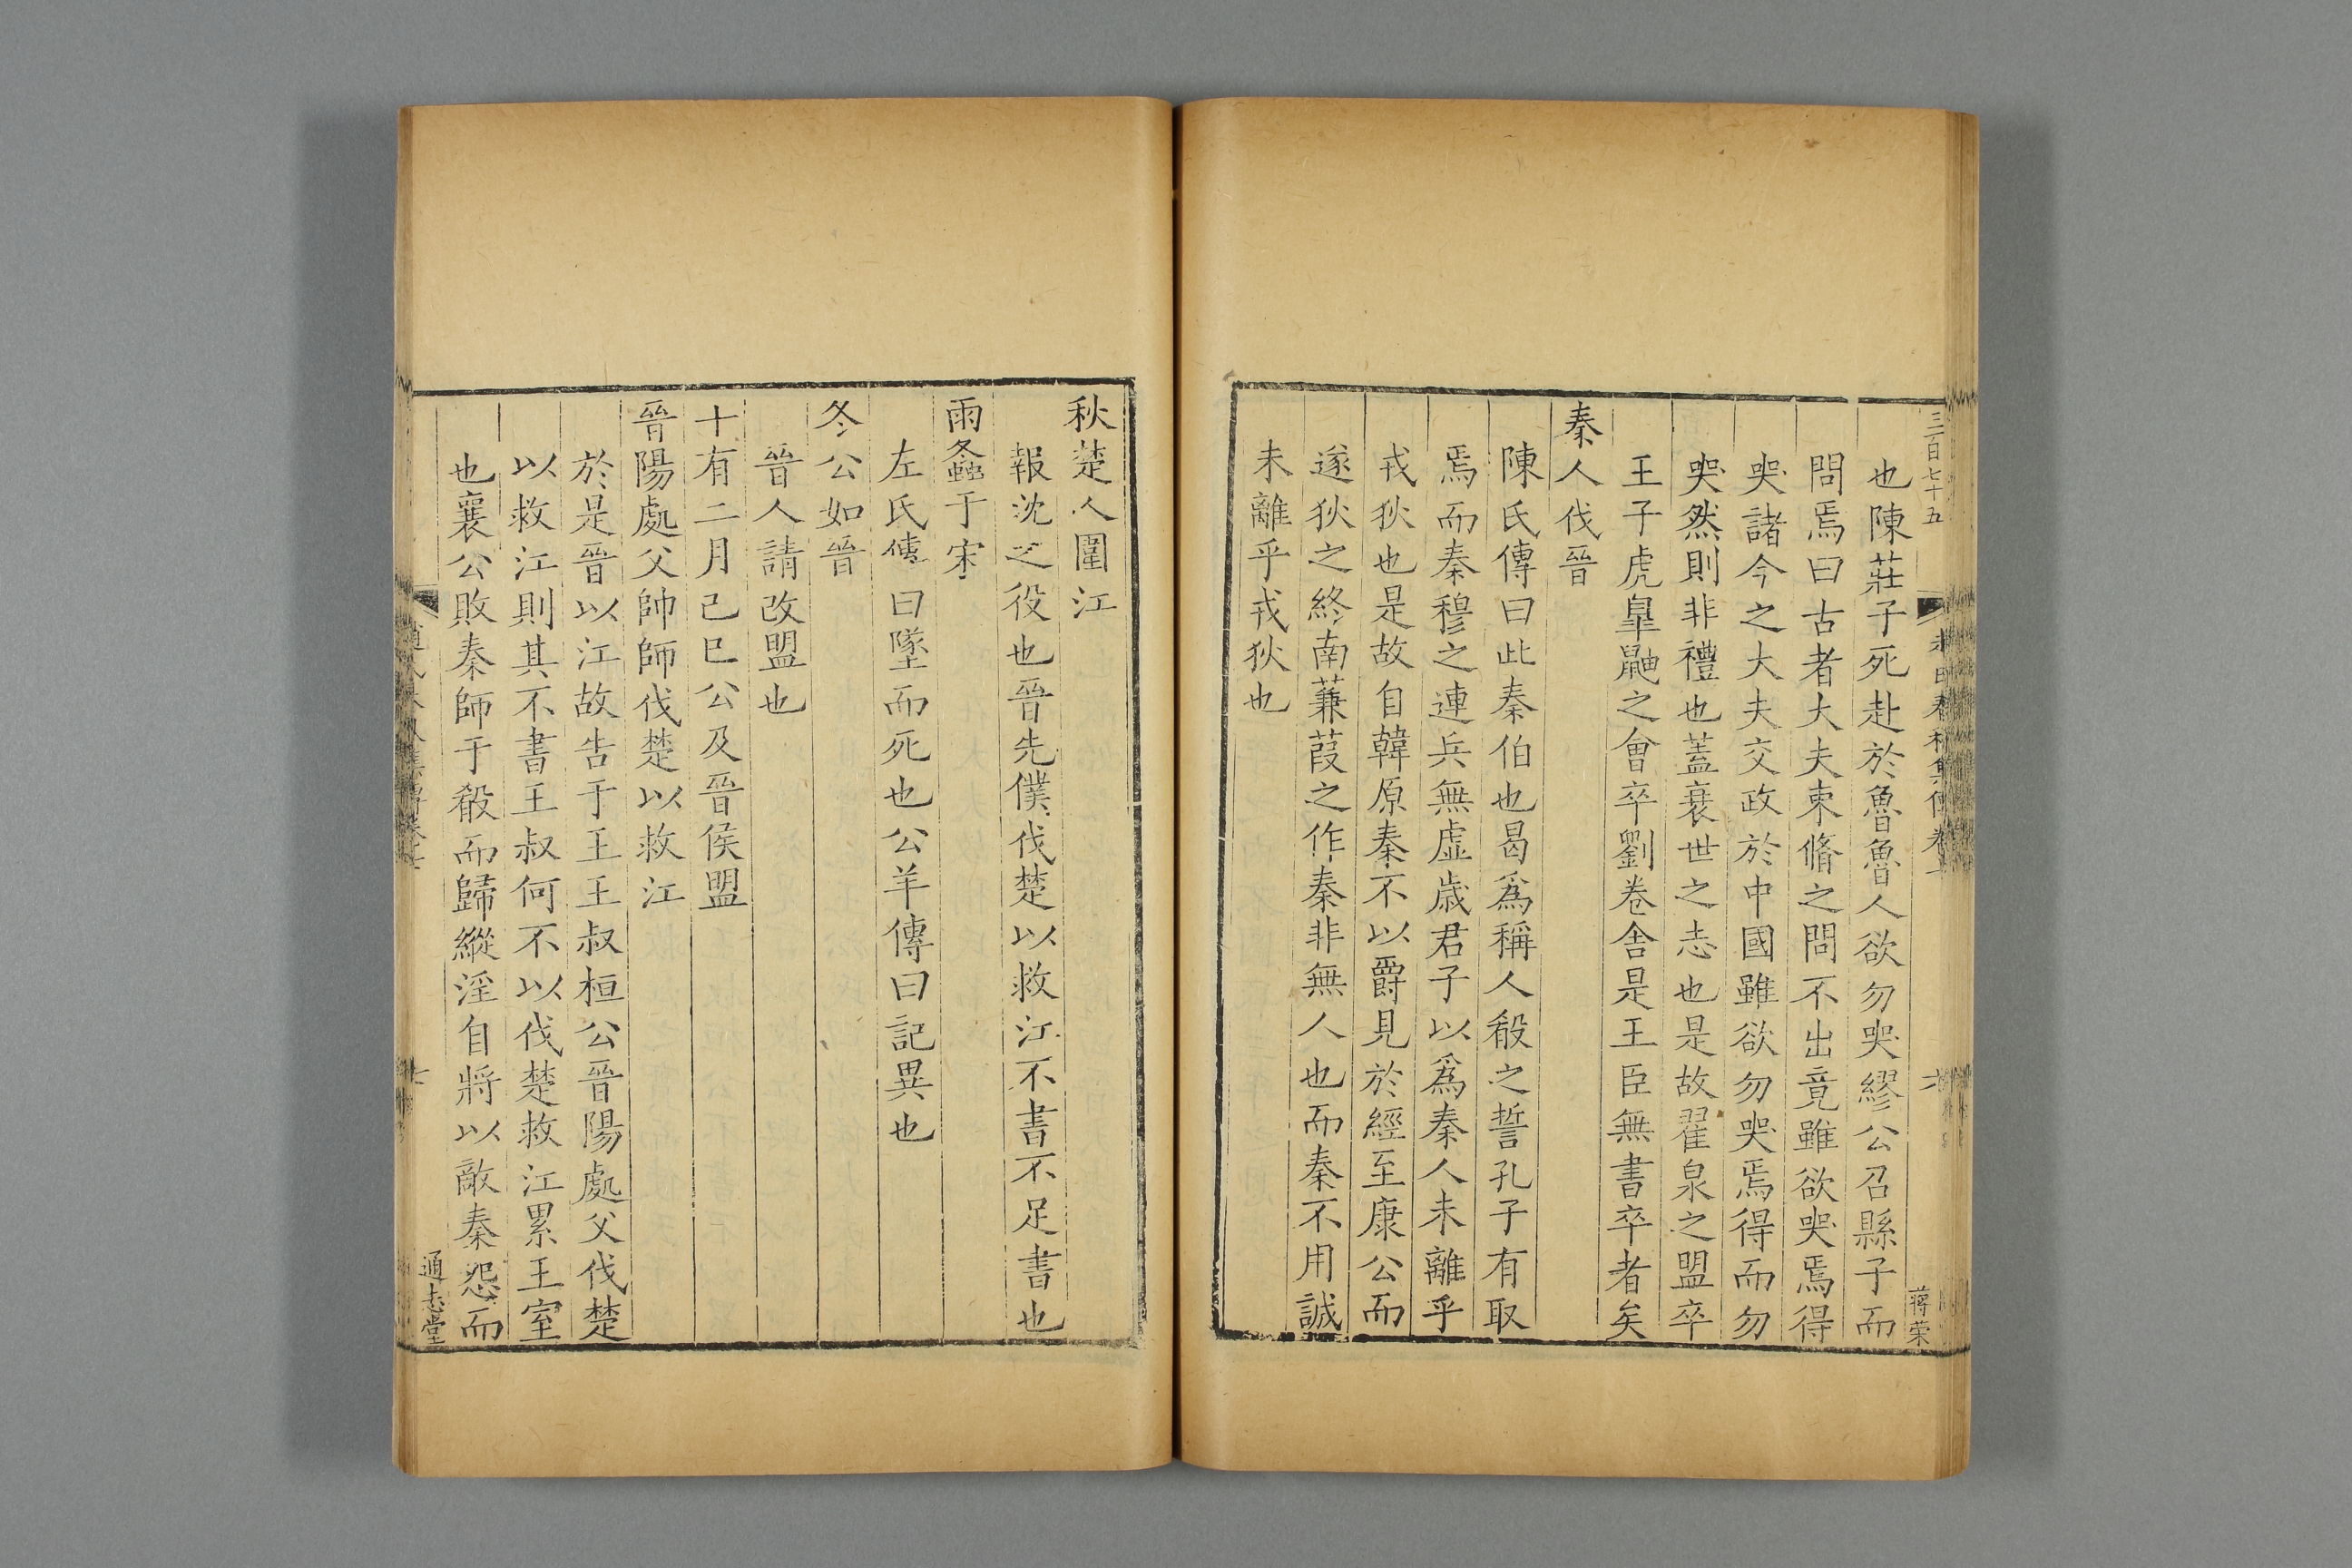 三百七十五
蒋荣
也陳莊子死赴於魯魯人欲勿哭繆公召縣子而
問焉曰古者大夫束脩之問不出竟雖欲哭焉得
哭諸今之大夫交政於中國雖欲勿哭焉得而勿
哭然則非禮也蓋衰世之志也是故翟泉之盟卒
王子虎臯鼬之會卒劉卷舍是王臣無書卒者矣
秦人伐晉
陳氏傳曰此秦伯也曷爲稱人殽之誓孔子有取
焉而秦穆之連兵無虛歲君子以爲秦人未離乎
戎狄也是故自韓原秦不以爵見於經至康公而
遂狄之終南蒹葭之作秦非無人也而秦不用誠
未離乎戎狄也
秋楚人圍江
報沈之役也晉先僕伐楚以救江不書不足書也
雨螽于宋
左氏傳曰墜而死也公羊傳曰記異也
冬公如晉
晉人請改盟也
十有二月己巳公及晉侯盟
晉陽處父帥師伐楚以救江
於是晉以江故告于王王叔桓公晉陽處父伐楚
以救江則其不書王叔何不以伐楚救江累王室
也襄公敗秦師于殽而歸縱淫自將以敵秦怨而
通志堂